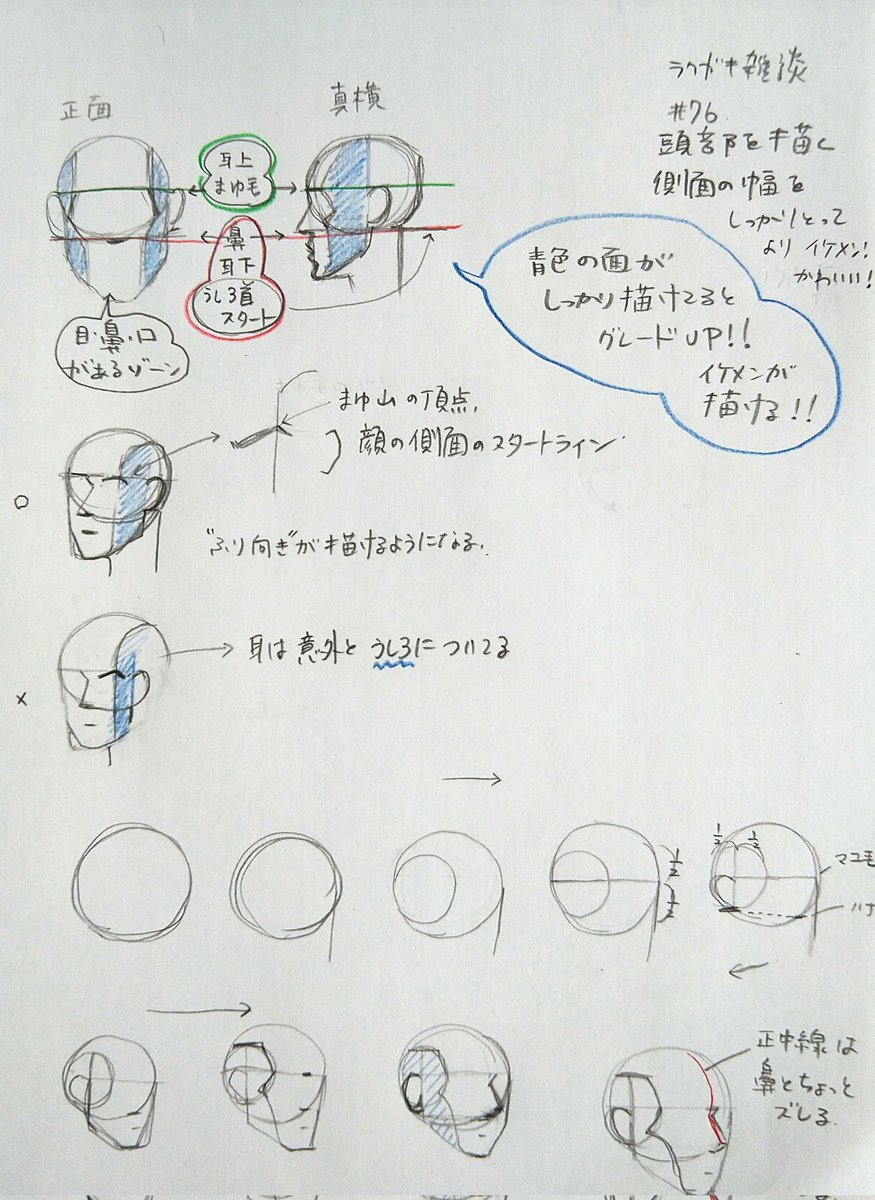 ラクガキ雑談
#76
頭部を描く
側面の幅を
しっかりとって
より イケメン!
かわいい!
正面
真横
耳上
まゆ毛
鼻
耳下
うしろ首
スタート
目・鼻・口
があるゾーン
青色の面が
しっかり描けてると
グレードUP!!
イケメンが
描ける!!
まゆ山の頂点,
顔の側面のスタートライン
○
"ふり向き"が描けるようになる.
×
耳は意外とうしろについてる
1/2
1/2
1/2
1/2
マユ毛
ハナ
正中線は
鼻とちょっと
ズレる.